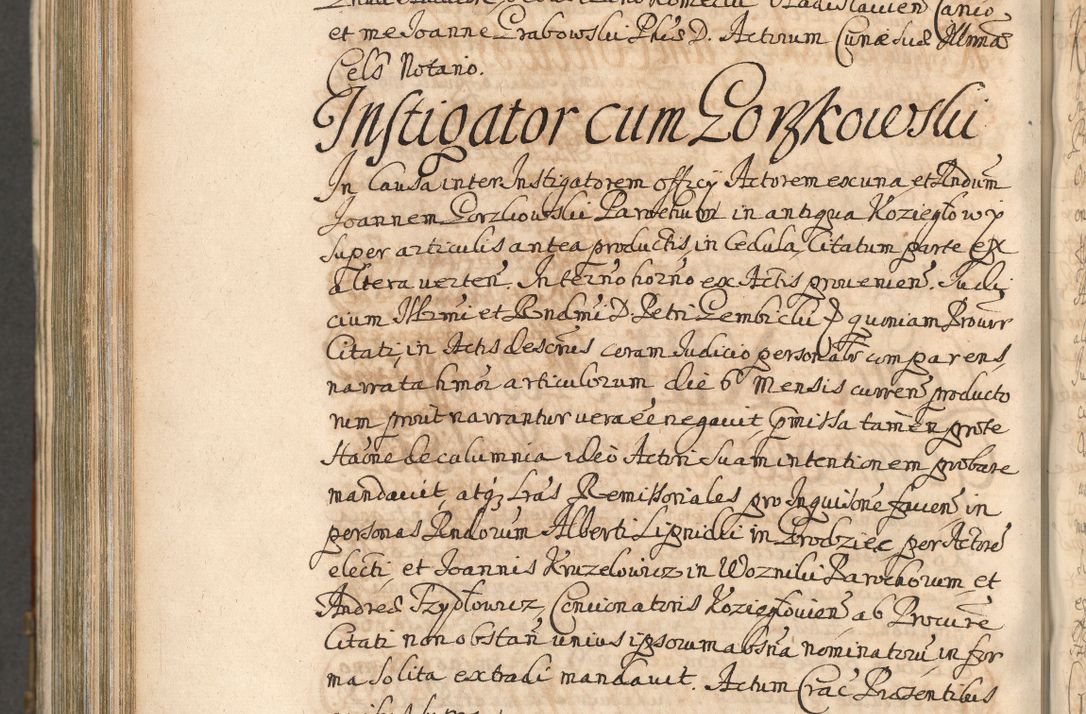 et me Joanne Grabowski Phiæ D. Actorum Curiæ Suæ Illmæ
Cels Notario.
Instigator cum Gorzkowski
In Causa inter Instigatorem officij Actorem ex una et Rndum
Joannem Gorzkowski Parochum in antiqua Koziegłowy
super articulis antea productis in Cedula, Citatum parte ex
altera verteñ. In termño horño ex Actis provenieñ. Judi
cium Illmi et Rndmi D. Petri Gembicki quoniam Procur
Citati, in Actis descriis coram Judicio personalr comparens
narrata hmoi articulorum die 6 Mensis curreñ producto
rum prout narrantur vera eē negavit, pmissa tamen prote
staōne de calumnia ideo Actori suam intentionem probare
mandavit, atq₃ Lras Remissoriales pro Inquisōne faueñ in
personas Rndorum Alberti Lipnicki in Grodziec per Actore
electi, et Joannis Kruzelowicz in Woznikii Parochorum, et
Andreæ Trzydłowicz, Concionatoris Koziegłovieñ ab Procure
Citati non obstañ unius ipsorum absna nominatorū in for
ma solita extradi mandavit. Actum Crac Præsentibus